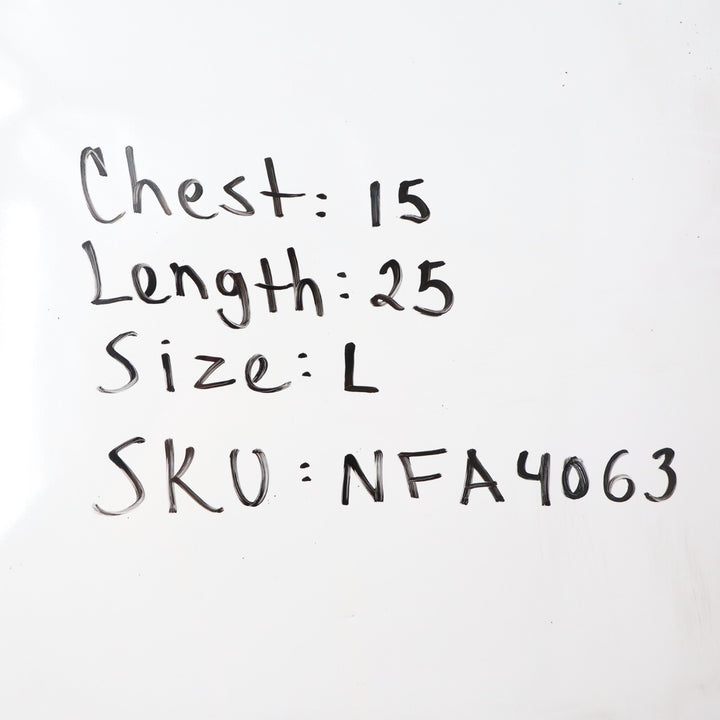 Chest: 15
Length: 25
Size: L
SKU: NFA4063